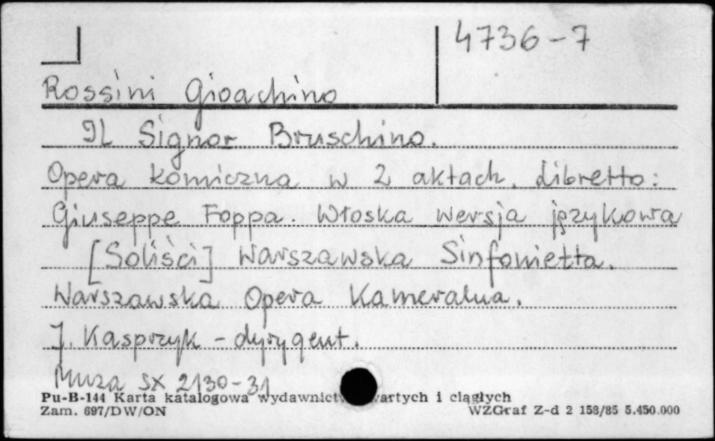 4736-7
Rossini Gioachino
Il Signor Bruschino.
Opera komiczna w 2 aktach. Libretto:
Giuseppe Foppa. Włoska wersja językowa
[Soliści] Warszawska Sinfonietta.
Warszawska Opera Kameralna.
J. Kasprzyk - dyrygent.
Muza SX 2130-31
Pu-B-144 Karta katalogowa wydawnictw zwartych i ciągłych
Zam. 697/DW/ON WZGraf Z-d 2 158/85 5.450.000